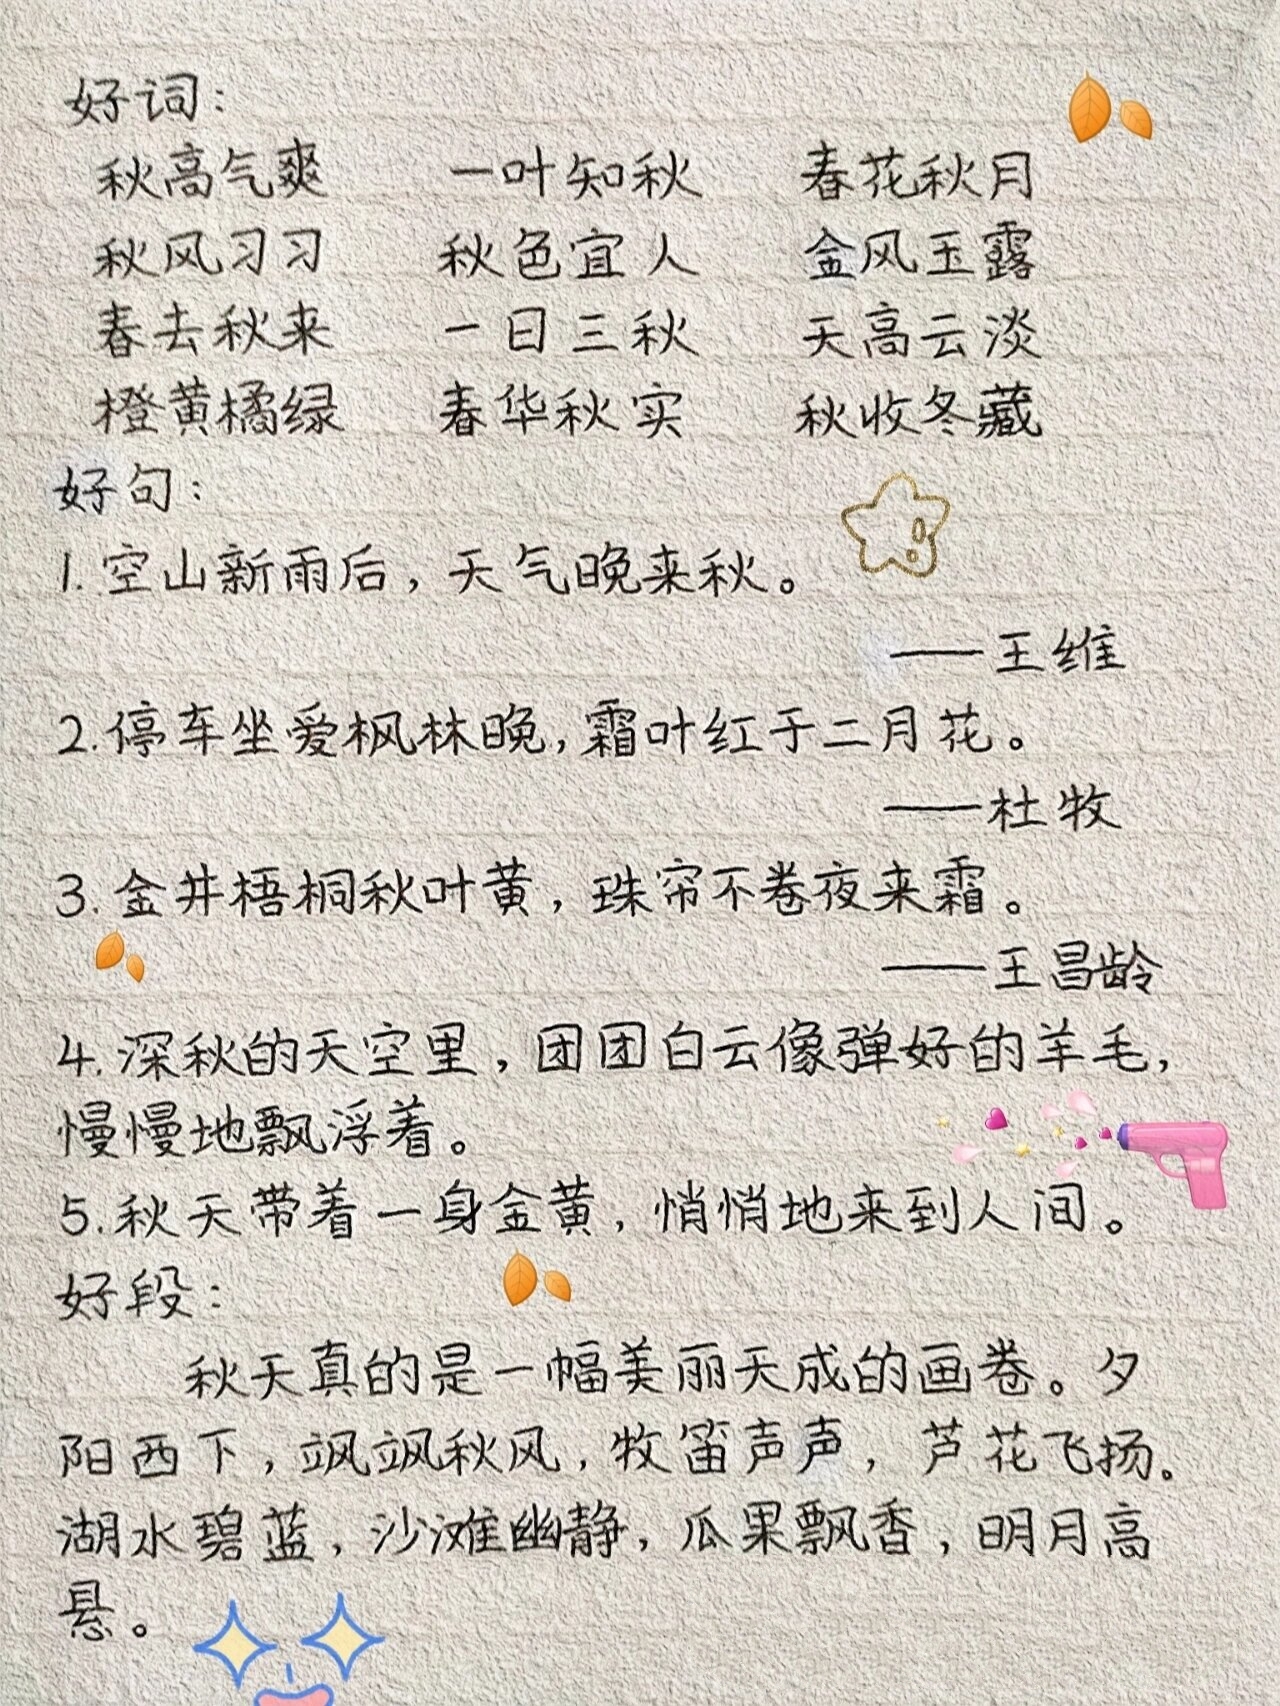 好词:
秋高气爽 一叶知秋 春花秋月
秋风习习 秋色宜人 金风玉露
春去秋来 一日三秋 天高云淡
橙黄橘绿 春华秋实 秋收冬藏
好句:
1.空山新雨后,天气晚来秋。
——王维
2.停车坐爱枫林晚,霜叶红于二月花。
——杜牧
3.金井梧桐秋叶黄,珠帘不卷夜来霜。
——王昌龄
4.深秋的天空里,团团白云像弹好的羊毛,
慢慢地飘浮着。
5.秋天带着一身金黄,悄悄地来到人间。
好段:
秋天真的是一幅美丽天成的画卷。夕
阳西下,飒飒秋风,牧笛声声,芦花飞扬。
湖水碧蓝,沙滩幽静,瓜果飘香,明月高
悬。